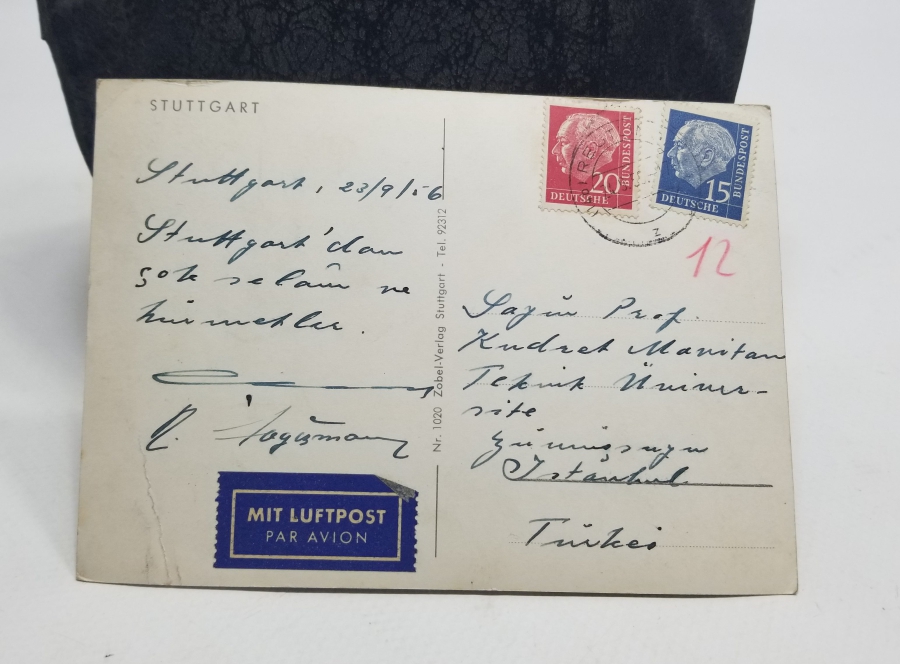 STUTTGART
Stuttgart, 23/9/56
Stuttgart'dan
çok selâm ve
hürmetler.
MIT LUFTPOST
PAR AVION
Nr. 1020 Zobel-Verlag Stuttgart - Tel. 92312
20
DEUTSCHE
BUNDESPOST
15
DEUTSCHE
BUNDESPOST
z
12
Sayın Prof.
Kudret Mavitan
Teknik Üniver-
site
Gümüşsuyu
Istanbul
Türkei